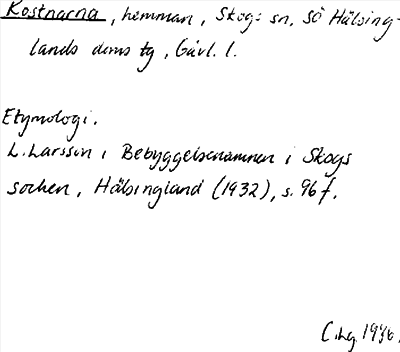 Kostnärna, hemman, Skogs sn. SÖ Hälsing-
lands doms tg, Gävl. l.
Etymologi.
L. Larsson i Bebyggelsenamnen i Skogs
socken, Hälsingland (1932), s. 96 f.
C. Lg. 1946.